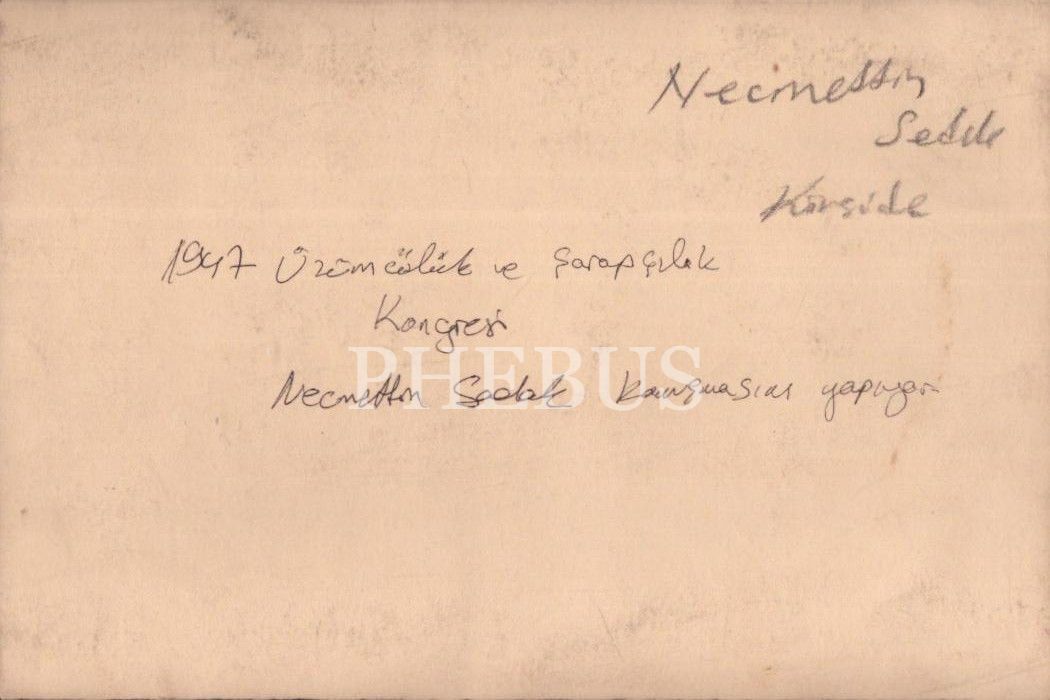 Necmettin
Sadak
Kürside
1947 Üzümcülük ve Şarapçılık
Kongresi
PHEBUS
Necmettin Sadak konuşmasını yapıyor